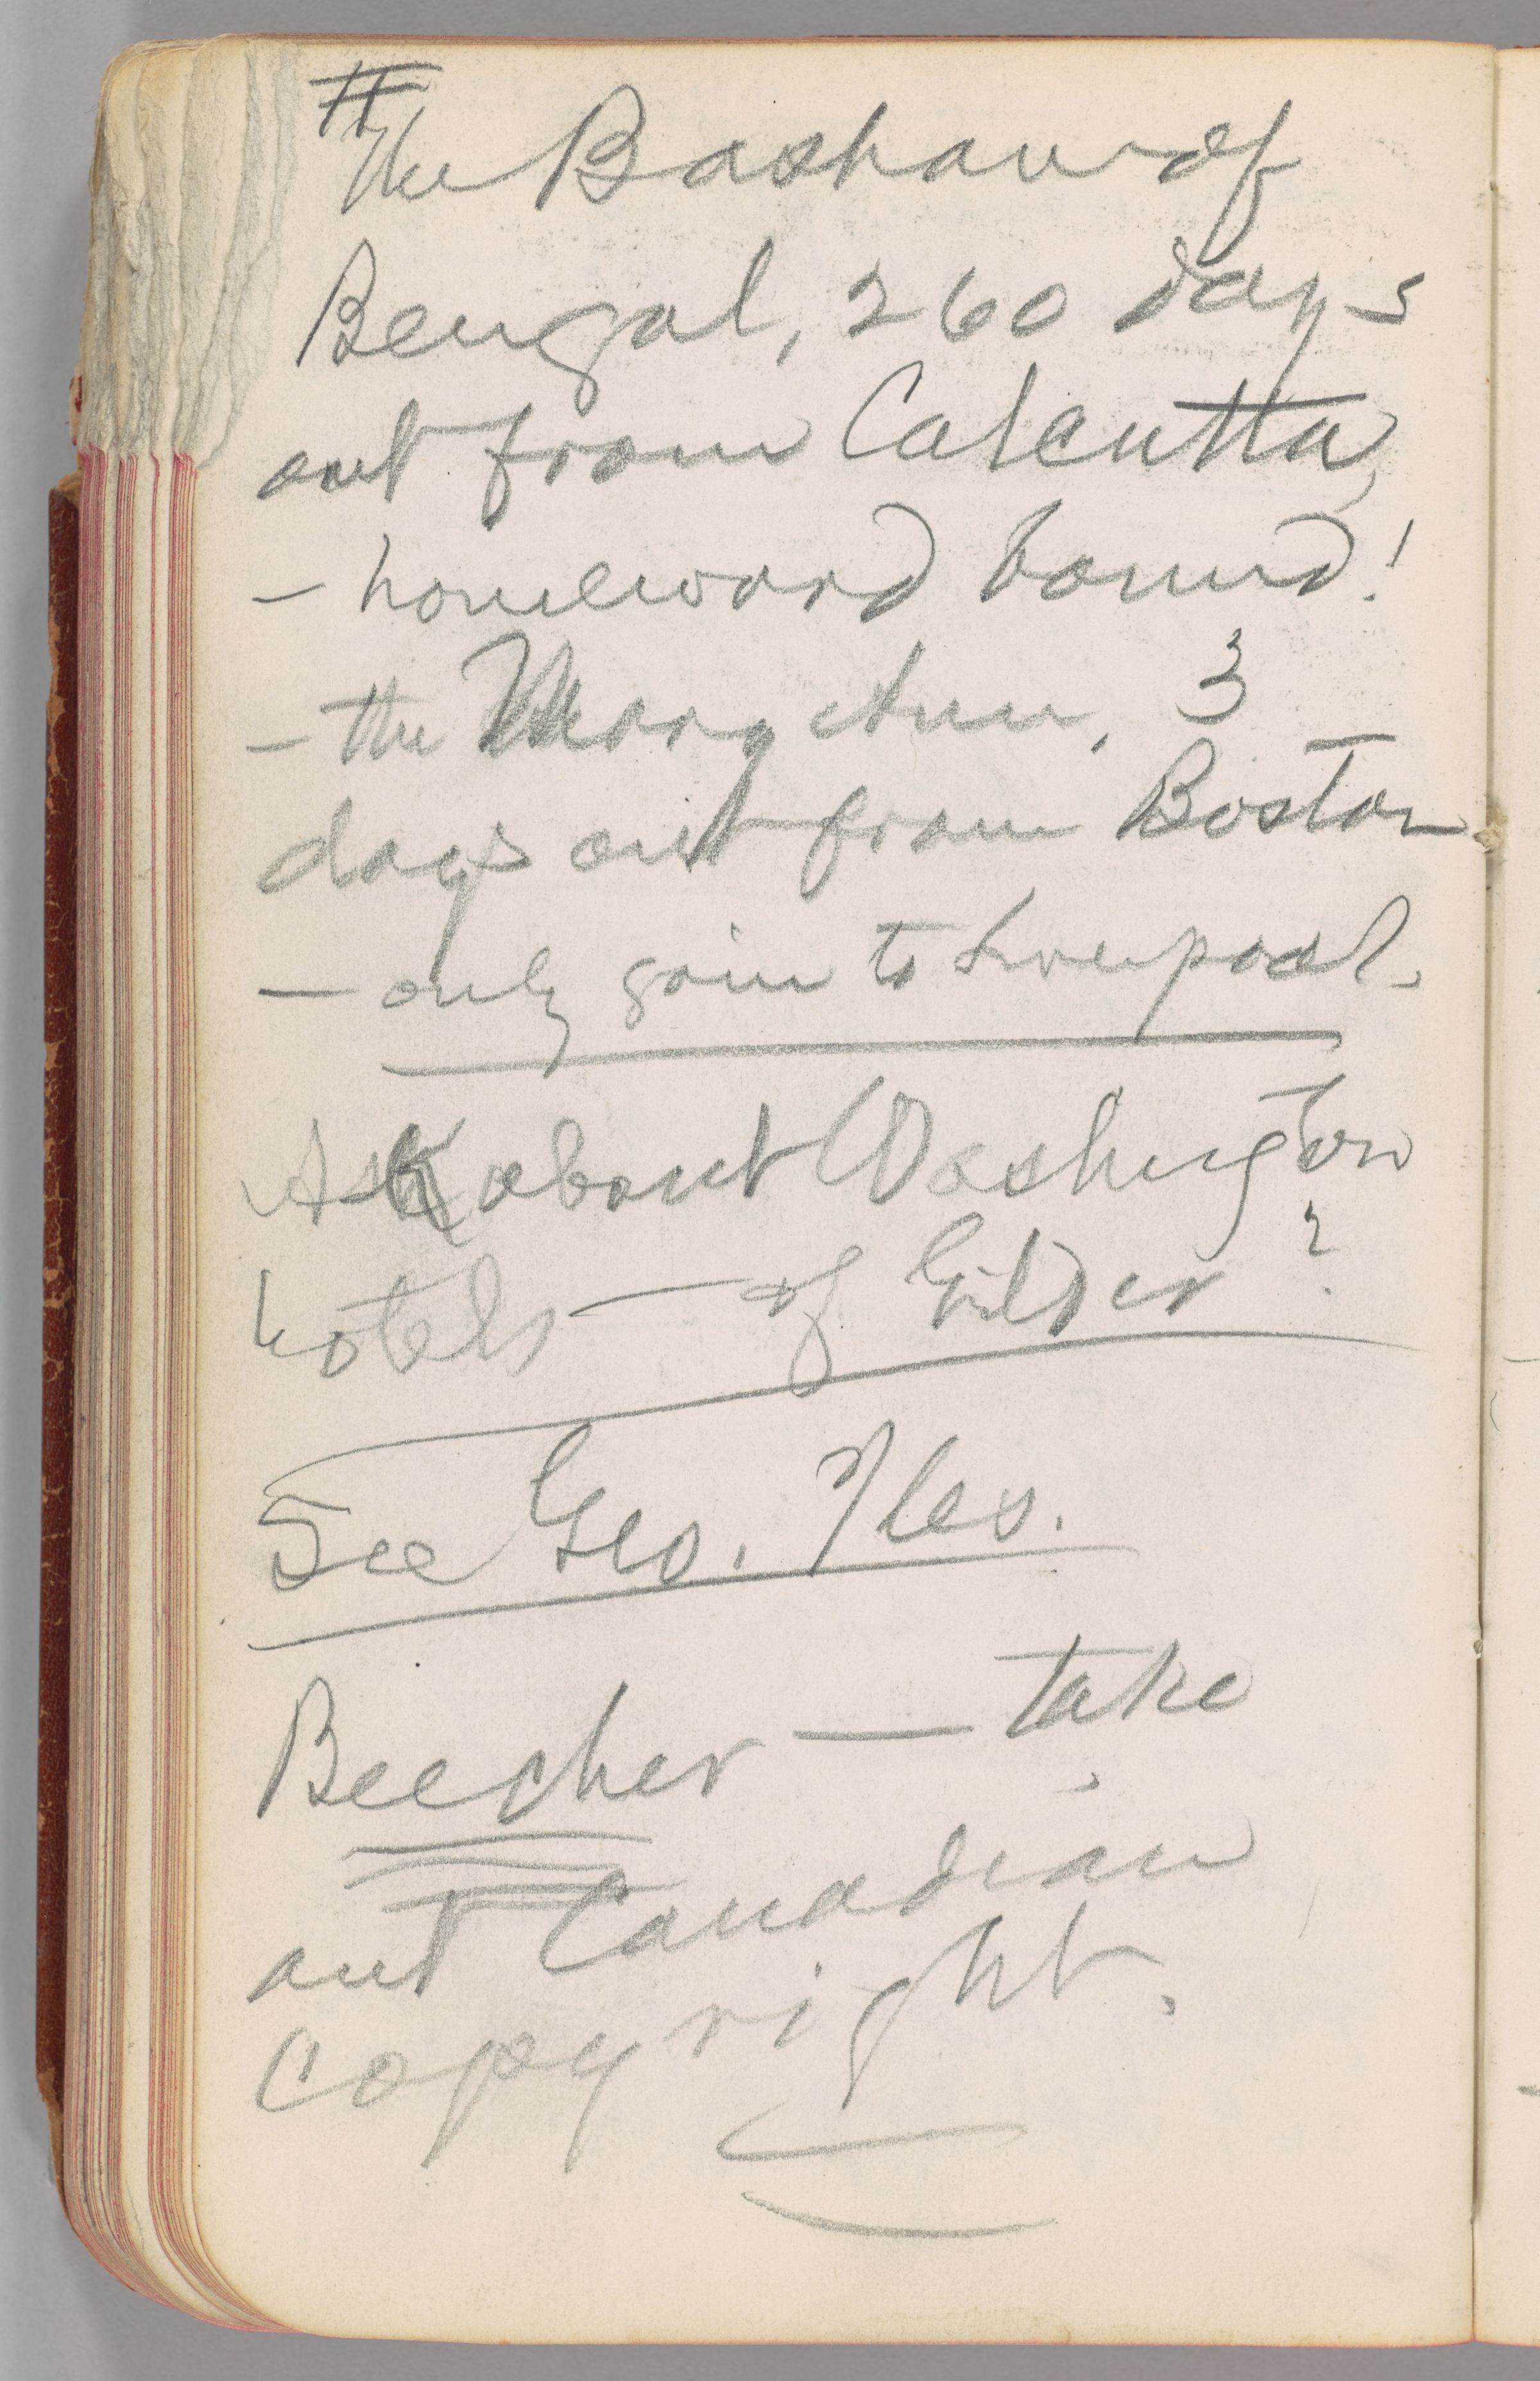 #
The Bashaw of
Bengal, 260 days
out from Calcutta,
— homeward bound!
— the Mary Ann, 3
days out from Boston
— only goin to Liverpool.
Ask about Washington
hotels — of Gilder?
See Geo. Iles.
Beecher — take
out Canadian
Copyright.